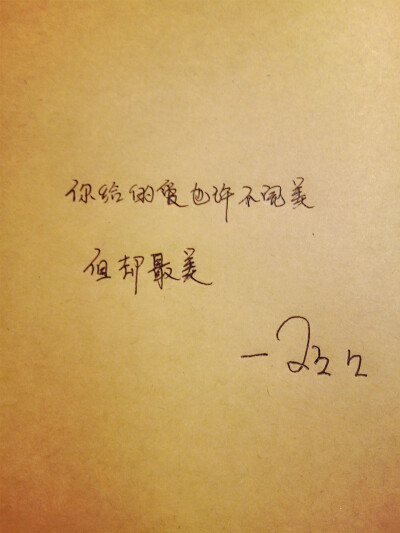 你给的爱也许不完美
但却最美